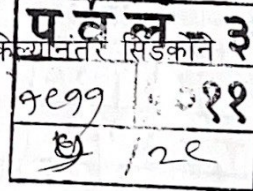 प व ल ३
केल्यानंतर सिडकोने
१९११ २०११
७ / २९